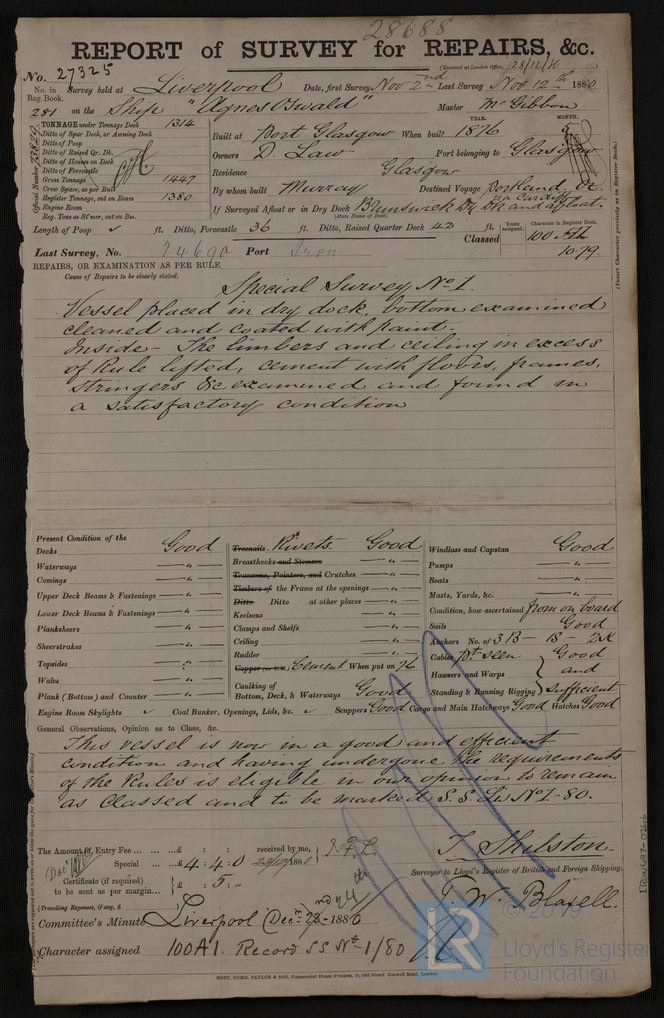 28688
REPORT of SURVEY for REPAIRS, &c.
(Received at London Office, 28/12/80
No. 27325
No. in Reg. Book. Survey held at Liverpool Date, first Survey Nov 2nd Last Survey Nov 12th 1880
281 on the Ship "Agnes Oswald" Master McGibbon
TONNAGE under Tonnage Deck 1314
Ditto of Spar Deck, or Awning Deck
Ditto of Poop
Ditto of Raised Qr. Dk.
Ditto of Houses on Deck
Ditto of Forecastle
Gross Tonnage 1447
Crew Space, as per Rule
Register Tonnage, cut on Beam 1380
Engine Room
Reg. Tons as St'mer, cut on Bm.
Official Number 73829
YEAR. MONTH.
Built at Port Glasgow When built 1876 5
Owners D. Law Port belonging to Glasgow
Residence Glasgow
By whom built Murray Destined Voyage Portland, O. via Cardiff
If Surveyed Afloat or in Dry Dock Brunswick Dry Dk and afloat.
(State Name of Dock)
Length of Poop ✓ ft. Ditto, Forecastle 36 ft. Ditto, Raised Quarter Deck 42 ft.
Years assigned. Character in Register Book.
Classed 100 A1
10.79
(Insert Character previously as in Register Book.)
Last Survey, No. 24690 Port Iron
REPAIRS, OR EXAMINATION AS PER RULE
Cause of Repairs to be clearly stated.
Special Survey No 1.
Vessel placed in dry dock, bottom examined
cleaned and coated with paint.
Inside - The limbers and ceiling in excess
of Rule lifted, cement with floors, frames,
stringers &c examined and found in
a satisfactory condition
Present Condition of the
Decks Good
Waterways "
Comings "
Upper Deck Beams & Fastenings "
Lower Deck Beams & Fastenings "
Planksheers "
Sheerstrakes "
Topsides "
Wales "
Plank (Bottom) and Counter "
Engine Room Skylights ✓ Coal Bunker, Openings, Lids, &c. ✓ Scuppers Good Cargo and Main Hatchways Good Hatches Good
Treenails Rivets Good
Breasthooks and Stemson "
Transoms, Pointers, and Crutches "
Timbers of the Frame at the openings "
Ditto Ditto at other places "
Keelsons "
Clamps and Shelfs "
Ceiling "
Rudder "
Cement When put on 76
Caulking of Bottom, Deck, & Waterways Good
Windlass and Capstan Good
Pumps "
Boats "
Masts, Yards, &c. "
Condition, how ascertained from on board
Sails Good
Anchors No. of 3 B - 1 S - 2 K
Cables pt seen Good
Hawsers and Warps and
Standing & Running Rigging Sufficient
General Observations, Opinion as to Class, &c.
This vessel is now in a good and efficient
condition and having undergone the requirements
of the Rules is eligible in our opinion to remain
as Classed and to be marked S. S. Li No 1 - 80.
The Amount of Entry Fee ... £ : : received by me,
Special ... £ 4 : 4 : 0
Certificate (if required) to be sent as per margin... £ : 5 :
(Travelling Expenses, if any, £
T. Shilston.
Surveyor to Lloyd's Register of British and Foreign Shipping.
T. W. Blaxell.
Committee's Minute Liverpool (Decr 1880
Character assigned 100 A1. Record S S No 1/80
ROBT. EDMD. TAYLOR & SON, Commercial Steam Printers, 19, Old Street, Goswell Road, London.
IRON497-0246
© 2019
LR
Lloyd's Register
Foundation